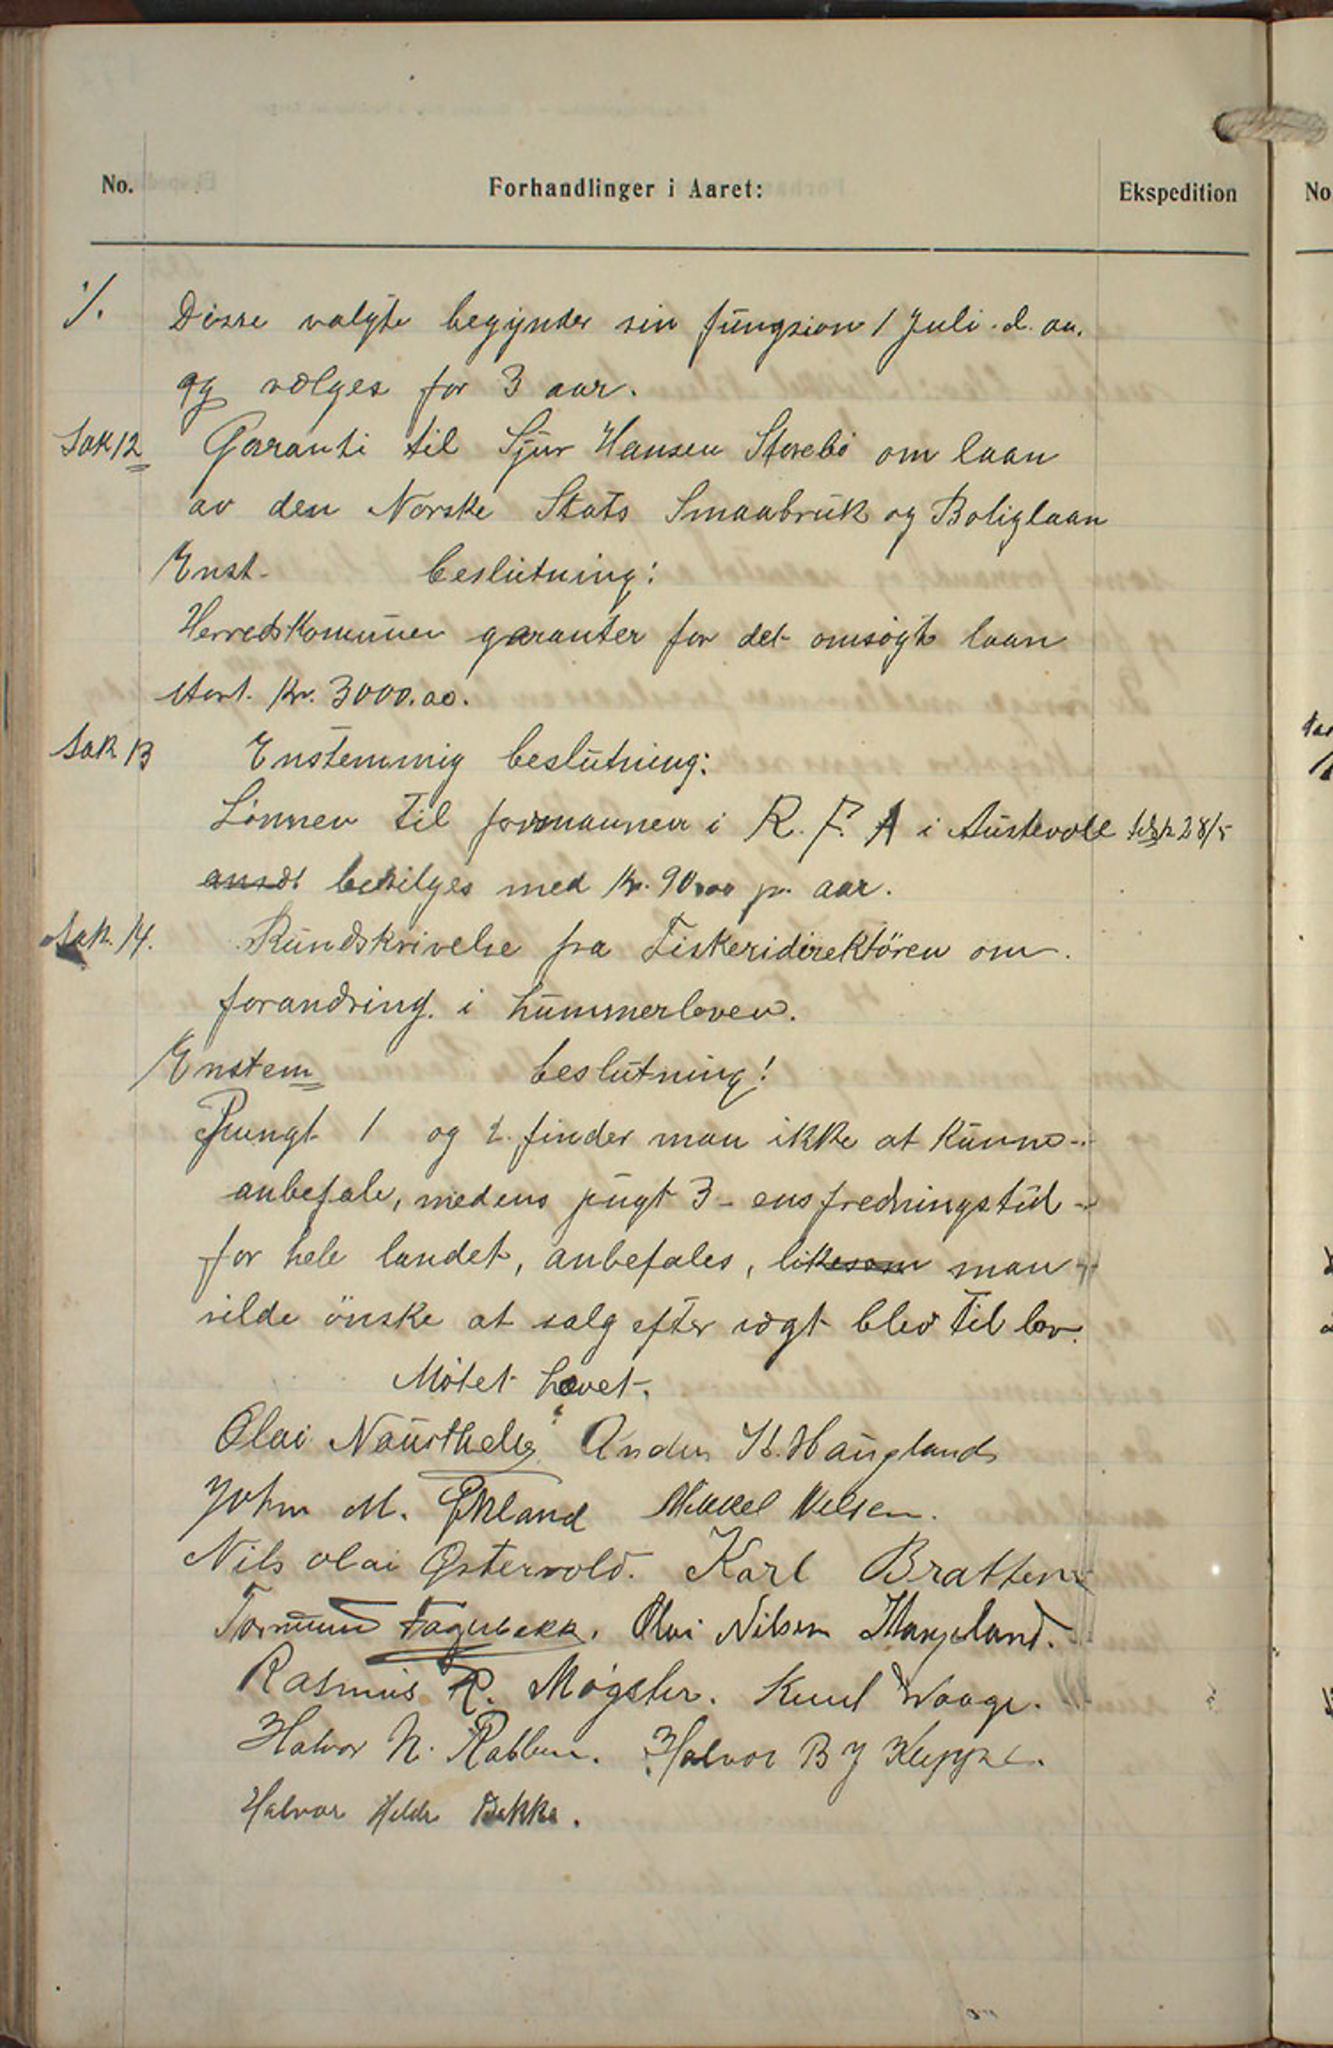 No. Forhandlinger i Aaret: Ekspedition No
·/. Disse valgte begynder sin fungsion 1 Juli d. aa.
og vælges for 3 aar.
Sak 12 Garanti til Sjur Hansen Storebö om laan
av den Norske Stats Smaabruk og Boliglaan
Enst. beslutning:
Herredskommunen garanter for det omsögte laan
stort. Kr. 3000.00.
Sak 13 Enstemmig beslutning:
Lönnen til formannen i R. F. A i Austevoll 28/5
ansæt bevilges med Kr. 90.00 pr. aar.
Sak. 14. Rundskrivelse fra Fiskeridirektören om
forandring i hummerloven.
Enstem beslutning!
Pungt 1 og 2. finder man ikke at kunne
anbefale, medens pugt 3 - ens fredningstid
for hele landet, anbefales, likesom man
vilde önske at salg efter vægt blev til lov.
Mötet hævet.
Olai Nausthella Anders H. Haugland
John M. Ekland Mikkel Nilsen.
Nils Olai Östervold. Karl Bratten
Tormund Fagerbakk. Olai Nilsen Haugland.
Rasmus R. Møgster. Knut Waage.
Halvor N. Rabben. Halvor B J Kuppe.
Halvor Helde Bakke.